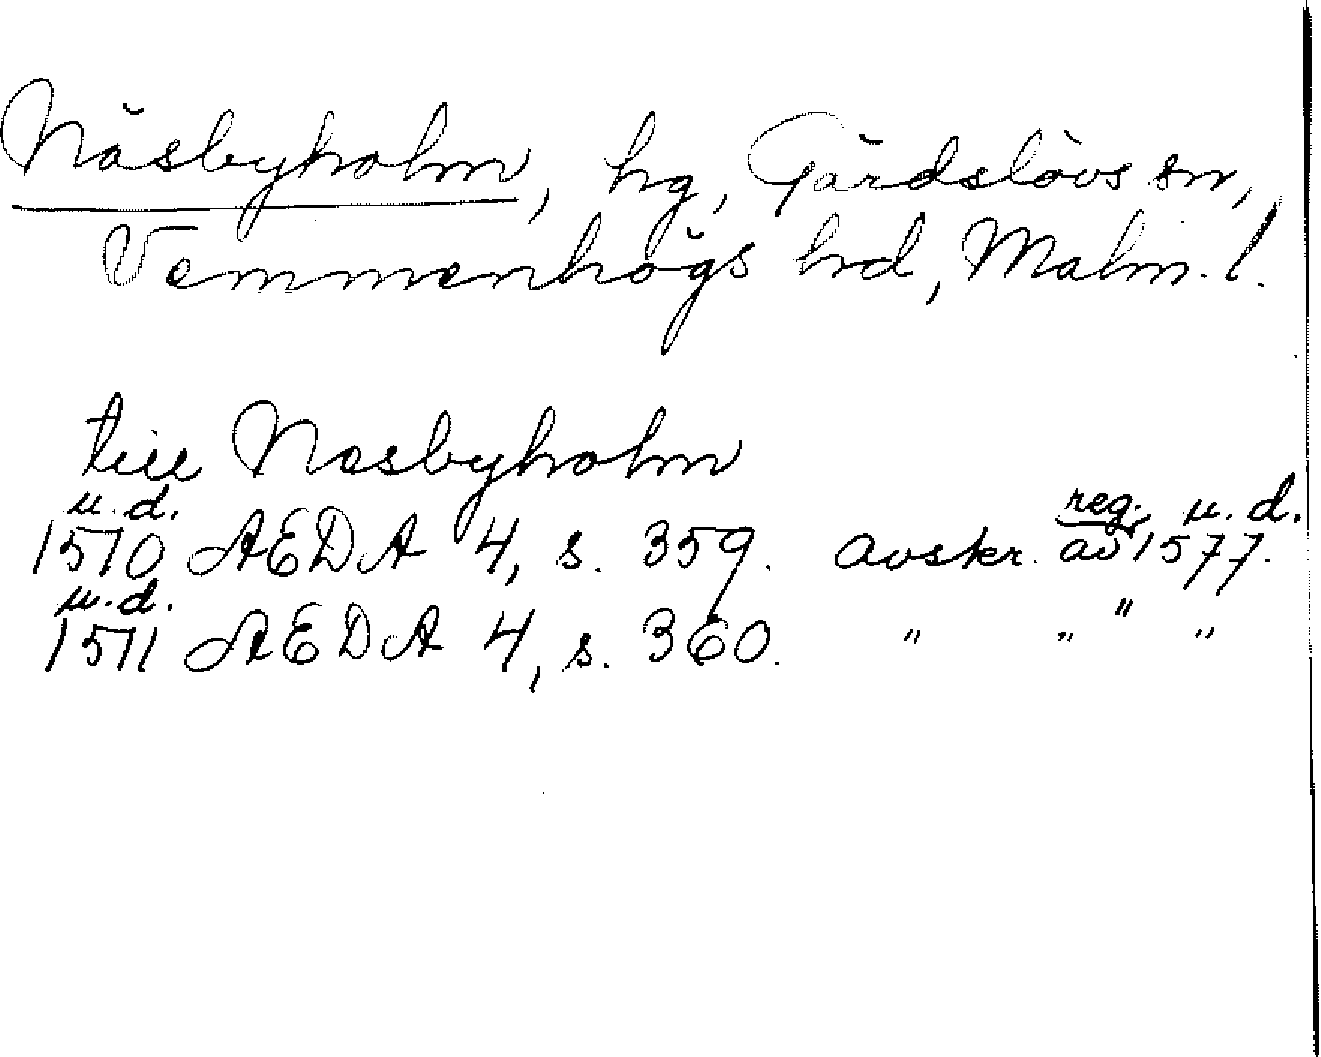 Näsbyholm, hg, Gärdslövs sn,
Vemmenhögs hrd, Malm. l.
till Nesbyholm
u. d. reg. u. d.
1510 AEDA 4, s. 359. avskr. av 1577.
u. d. "
1511 AEDA 4, s. 360. " " "